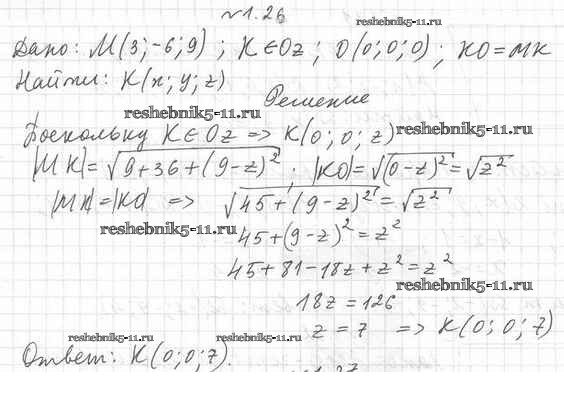 №1.26
reshebnik5-11.ru
Дано: M(3;-6;9) ; K∈Oz ; O(0;0;0) ; KO=MK
Найти: K(x; y; z)
Решение
reshebnik5-11.ru
Поскольку K∈Oz => K(0; 0; z)
reshebnik5-11.ru
|MK|=√(9+36+(9-z)²) ; |KO|=√((0-z)²)=√(z²)
|MK|=|KO| => √(45+(9-z)²)=√(z²)
reshebnik5-11.ru
45+(9-z)²=z²
45+81-18z+z²=z²
reshebnik5-11.ru
18z=126
z=7 => K(0; 0; 7)
reshebnik5-11.ru reshebnik5-11.ru
Ответ: K(0;0;7).